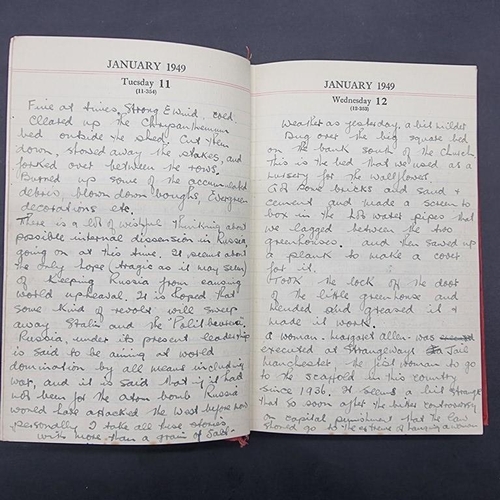 JANUARY 1949
Tuesday 11
(11-354)
Fine at times, Strong E wind, cold.
Cleared up the Chrysanthemum
bed outside the shed. Cut them
down, stowed away the stakes, and
forked over between the rows.
Burned up some of the accumulated
debris, blown down boughs, Evergreen
decorations etc.
There is a lot of wishful thinking about
possible internal dissension in Russia
going on at this time. It seems about
the only hope (tragic as it may seem)
of keeping Russia from causing
world upheaval. It is hoped that
some kind of revolt will sweep
away Stalin and the "Politbureau"
Russia, under its present leadership
is said to be aiming at world
domination by all means including
war, and it is said that if it had
not been for the atom bomb Russia
would have attacked the West before now
personally I take all these stories
with more than a grain of Salt.
JANUARY 1949
Wednesday 12
(12-353)
Weather as yesterday, a bit milder
Dug over the big square bed
on the bank south of the church
This is the bed that we used as a
nursery for the wallflowers
Got some bricks and sand &
cement and made a screen to
box in the hot water pipes that
we lagged between the two
greenhouses. and then sawed up
a plank to make a cover
for it.
Took the lock of the door
of the little greenhouse and
mended and greased it &
made it work.
A woman - Margaret Allen - was
executed at Strangeways Jail
Manchester - the first woman to go
to the scaffold in this country
since 1936. It seems a bit strange
that so soon after the bitter controversy
on capital punishment that the law
should go to the extreme of hanging a woman